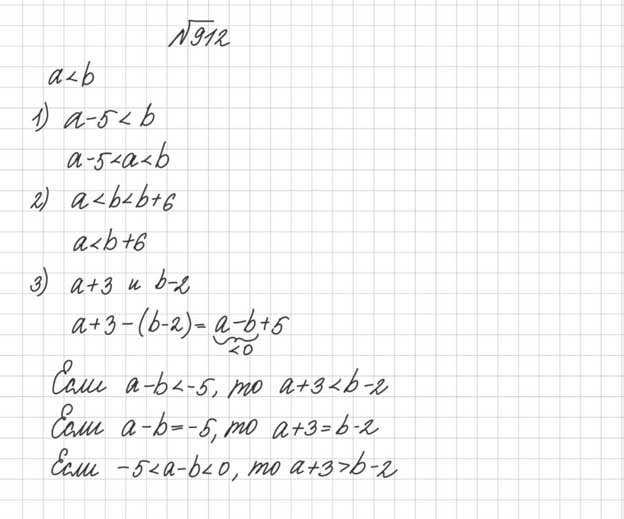 √912
a<b
1) a-5<b
a-5<a<b
2) a<b<b+6
a<b+6
3) a+3 и b-2
a+3-(b-2)=a-b+5
<0
Если a-b<-5, то a+3<b-2
Если a-b=-5, то a+3=b-2
Если -5<a-b<0, то a+3>b-2